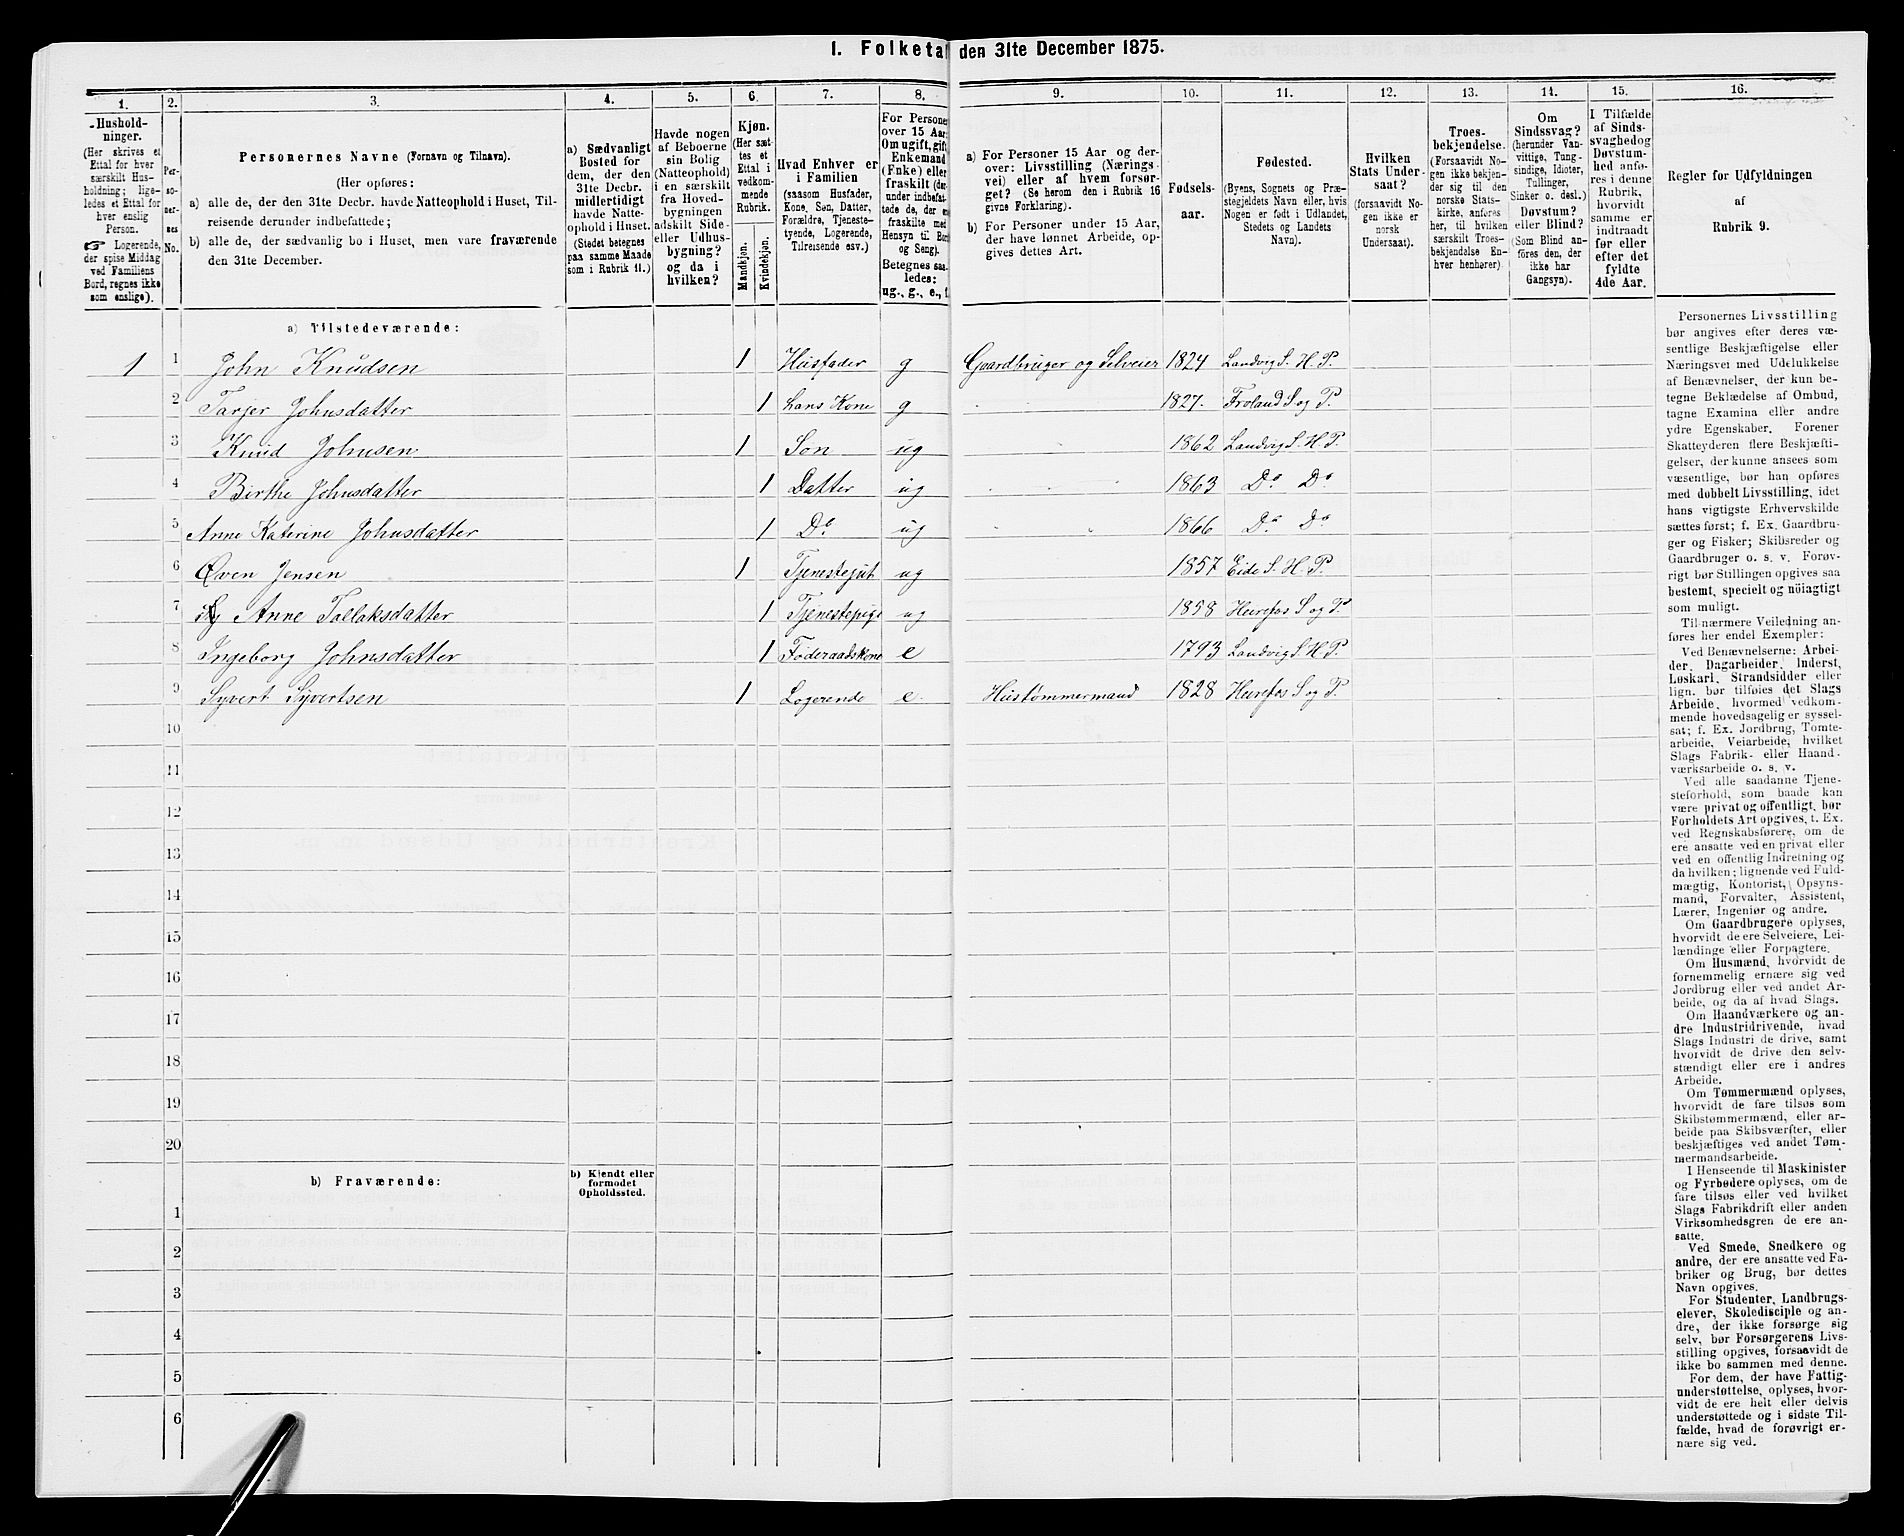 I. Folketal den 31te December 1875.
1. 2. 3. 4. 5. 6. 7. 8. 9. 10. 11. 12. 13. 14. 15. 16.
Hushold-
ninger.
(Her skrives et
Ettal for hver
særskilt Hus-
holdning; lige-
ledes et Ettal for
hver enslig
Person.
☞ Logerende,
der spise Middag
ved Familiens
Bord, regnes ikke
som enslige).
Per-
so-
ner-
nes
No.
Personernes Navne (Fornavn og Tilnavn).
(Her opføres:
a) alle de, der den 31te Decbr. havde Natteophold i Huset, Til-
reisende derunder indbefattede;
b) alle de, der sædvanlig bo i Huset, men vare fraværende
den 31te December.
a) Sædvanligt
Bosted for
dem, der den
31te Decbr.
midlertidigt
havde Natte-
ophold i Huset.
(Stedet betegnes
paa samme Maade
som i Rubrik 11.)
Havde nogen
af Beboerne
sin Bolig
(Natteophold)
i en særskilt
fra Hoved-
bygningen
adskilt Side-
eller Udhus-
bygning?
og da i
hvilken?
Kjøn.
(Her sæt-
tes et
Ettal i
vedkom-
mende
Rubrik.
Mandkjøn.
Kvindekjøn.
Hvad Enhver er
i Familien
(saasom Husfader,
Kone, Søn, Datter,
Forældre, Tjeneste-
tyende, Logerende,
Tilreisende osv.)
For Personer
over 15 Aar:
Om ugift, gift,
Enkemand
(Enke) eller
fraskilt (der-
under indbefat-
tede de, der ere
fraskilte med
Hensyn til Bord
og Seng).
Betegnes saa-
ledes:
ug., g., e., f.
a) For Personer 15 Aar og der-
over: Livsstilling (Nærings-
vei) eller af hvem forsør-
get? (Se herom den i Rubrik 16
givne Forklaring).
b) For Personer under 15 Aar,
der have lønnet Arbeide, op-
gives dettes Art.
Fødsels-
aar.
Fødested.
(Byens, Sognets og Præ-
stegjeldets Navn eller, hvis
Nogen er født i Udlandet,
Stedets og Landets
Navn).
Hvilken
Stats Under-
saat?
(forsaavidt No-
gen ikke er
norsk
Undersaat).
Troes-
bekjendelse.
(Forsaavidt No-
gen ikke bekjen-
der sig til den
norske Stats-
kirke, anføres
her, til hvilken
særskilt Troes-
bekjendelse En-
hver henhører).
Om
Sindssvag?
(herunder Van-
vittige, Tung-
sindige, Idioter,
Tullinger,
Sinker o. desl.)
Døvstum?
eller Blind?
(Som Blind an-
føres den, der
ikke har
Gangsyn).
I Tilfælde
af Sinds-
svaghed og
Døvstum-
hed anfø-
res i denne
Rubrik,
hvorvidt
samme er
indtraadt
før eller
efter det
fyldte
4de Aar.
Regler for Udfyldningen
af
Rubrik 9.
a) Tilstedeværende:
1 1 John Knudsen 1 Husfader g Gaardbruger og Selveier 1824 Landvig S. H. P.
2 Tarjer Johnsdatter 1 hans Kone g 1827. Froland S og P.
3 Knud Johnsen 1 Søn ug 1862 Landvig S. H. P.
4 Birthe Johnsdatter 1 Datter ug 1863 Do Do
5 Anne Katerine Johnsdatter 1 Do ug 1866 Do Do
6 Øven Jensen 1 Tjenestejut ug 1857 Eide S. H. P.
7 Anne Tallaksdatter 1 Tjenestepige ug 1858 Herefos S og P
8 Ingeborg Johnsdatter 1 Føderaadskone e 1793 Landvig S. H. P.
9 Syvert Syvertsen 1 Logerende e. Hustømmermand 1828 Herefos S og P.
10
11
12
13
14
15
16
17
18
19
20
b) Fraværende:
b) Kjendt eller
formodet
Opholdssted.
1
2
3
4
5
6
Personernes Livsstilling
bør angives efter deres væ-
sentlige Beskjæftigelse eller
Næringsvei med Udelukkelse
af Benævnelser, der kun be-
tegne Beklædelse af Ombud,
tagne Examina eller andre
ydre Egenskaber. Forener
Skatteyderen flere Beskjæfti-
gelser, der kunne ansees som
væsentlige, bør han opføres
med dobbelt Livsstilling, idet
hans vigtigste Erhvervskilde
sættes først; f. Ex. Gaardbru-
ger og Fisker; Skibsreder og
Gaardbruger o. s. v. Forøv-
rigt bør Stillingen opgives saa
bestemt, specielt og nöiagtigt
som muligt.
Til nærmere Veiledning an-
føres her endel Exempler:
Ved Benævnelserne: Arbei-
der, Dagarbeider, Inderst,
Løskarl, Strandsidder eller
lign. bør tilføies det Slags
Arbeide, hvormed vedkom-
mende hovedsagelig er syssel-
sat; f. Ex. Jordbrug, Tomte-
arbeide, Veiarbeide, hvilket
Slags Fabrik- eller Haand-
værksarbeide o. s. v.
Ved alle saadanne Tjene-
steforhold, som baade kan
være privat og offentligt, bør
Forholdets Art opgives, t. Ex.
ved Regnskabsførere, om de
ere ansatte ved en privat eller
ved en offentlig Indretning og
da hvilken; lignende ved Fuld-
mægtig, Kontorist, Opsyns-
mand, Forvalter, Assistent,
Lærer, Ingeniør og andre.
Om Gaardbrugere oplyses,
hvorvidt de ere Selveiere, Lei-
lændinge eller Forpagtere.
Om Husmænd, hvorvidt de
fornemmelig ernære sig ved
Jordbrug eller ved andet Ar-
beide, og da af hvad Slags.
Om Haandværkere og an-
dre Industridrivende, hvad
Slags Industri de drive, samt
hvorvidt de drive den selv-
stændigt eller ere i andres
Arbeide.
Om Tømmermænd oplyses,
hvorvidt de fare tilsøs som
Skibstømmermænd, eller ar-
beide paa Skibsværfter, eller
beskjæftiges ved andet Tøm-
mermandsarbeide.
I Henseende til Maskinister
og Fyrbødere oplyses, om de
fare tilsøs eller ved hvilket
Slags Fabrikdrift eller anden
Virksomhedsgren de ere an-
satte.
Ved Smede, Snedkere og
andre, der ere ansatte ved Fa-
briker og Brug, bør dettes
Navn opgives.
For Studenter, Landbrugs-
elever, Skoledisciple og an-
dre, der ikke forsørge sig
selv, bør Forsørgerens Livs-
stilling opgives, forsaavidt de
ikke bo sammen med denne.
For dem, der have Fattig-
understøttelse, oplyses, hvor-
vidt de ere helt eller delvis
understøttede og i sidste Til-
fælde, hvad de forøvrigt er-
nære sig ved.